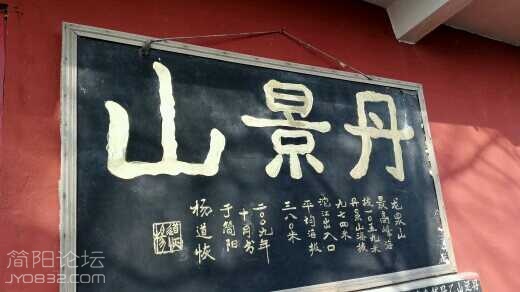 丹景山
龙泉山
最高峰海
拔一〇五九米
丹景山海拔
九七四米
沱江出入口
平均海拔
三八〇米
二〇〇九年
十月书
于简阳
杨道恢
简阳论坛
JY0832.com